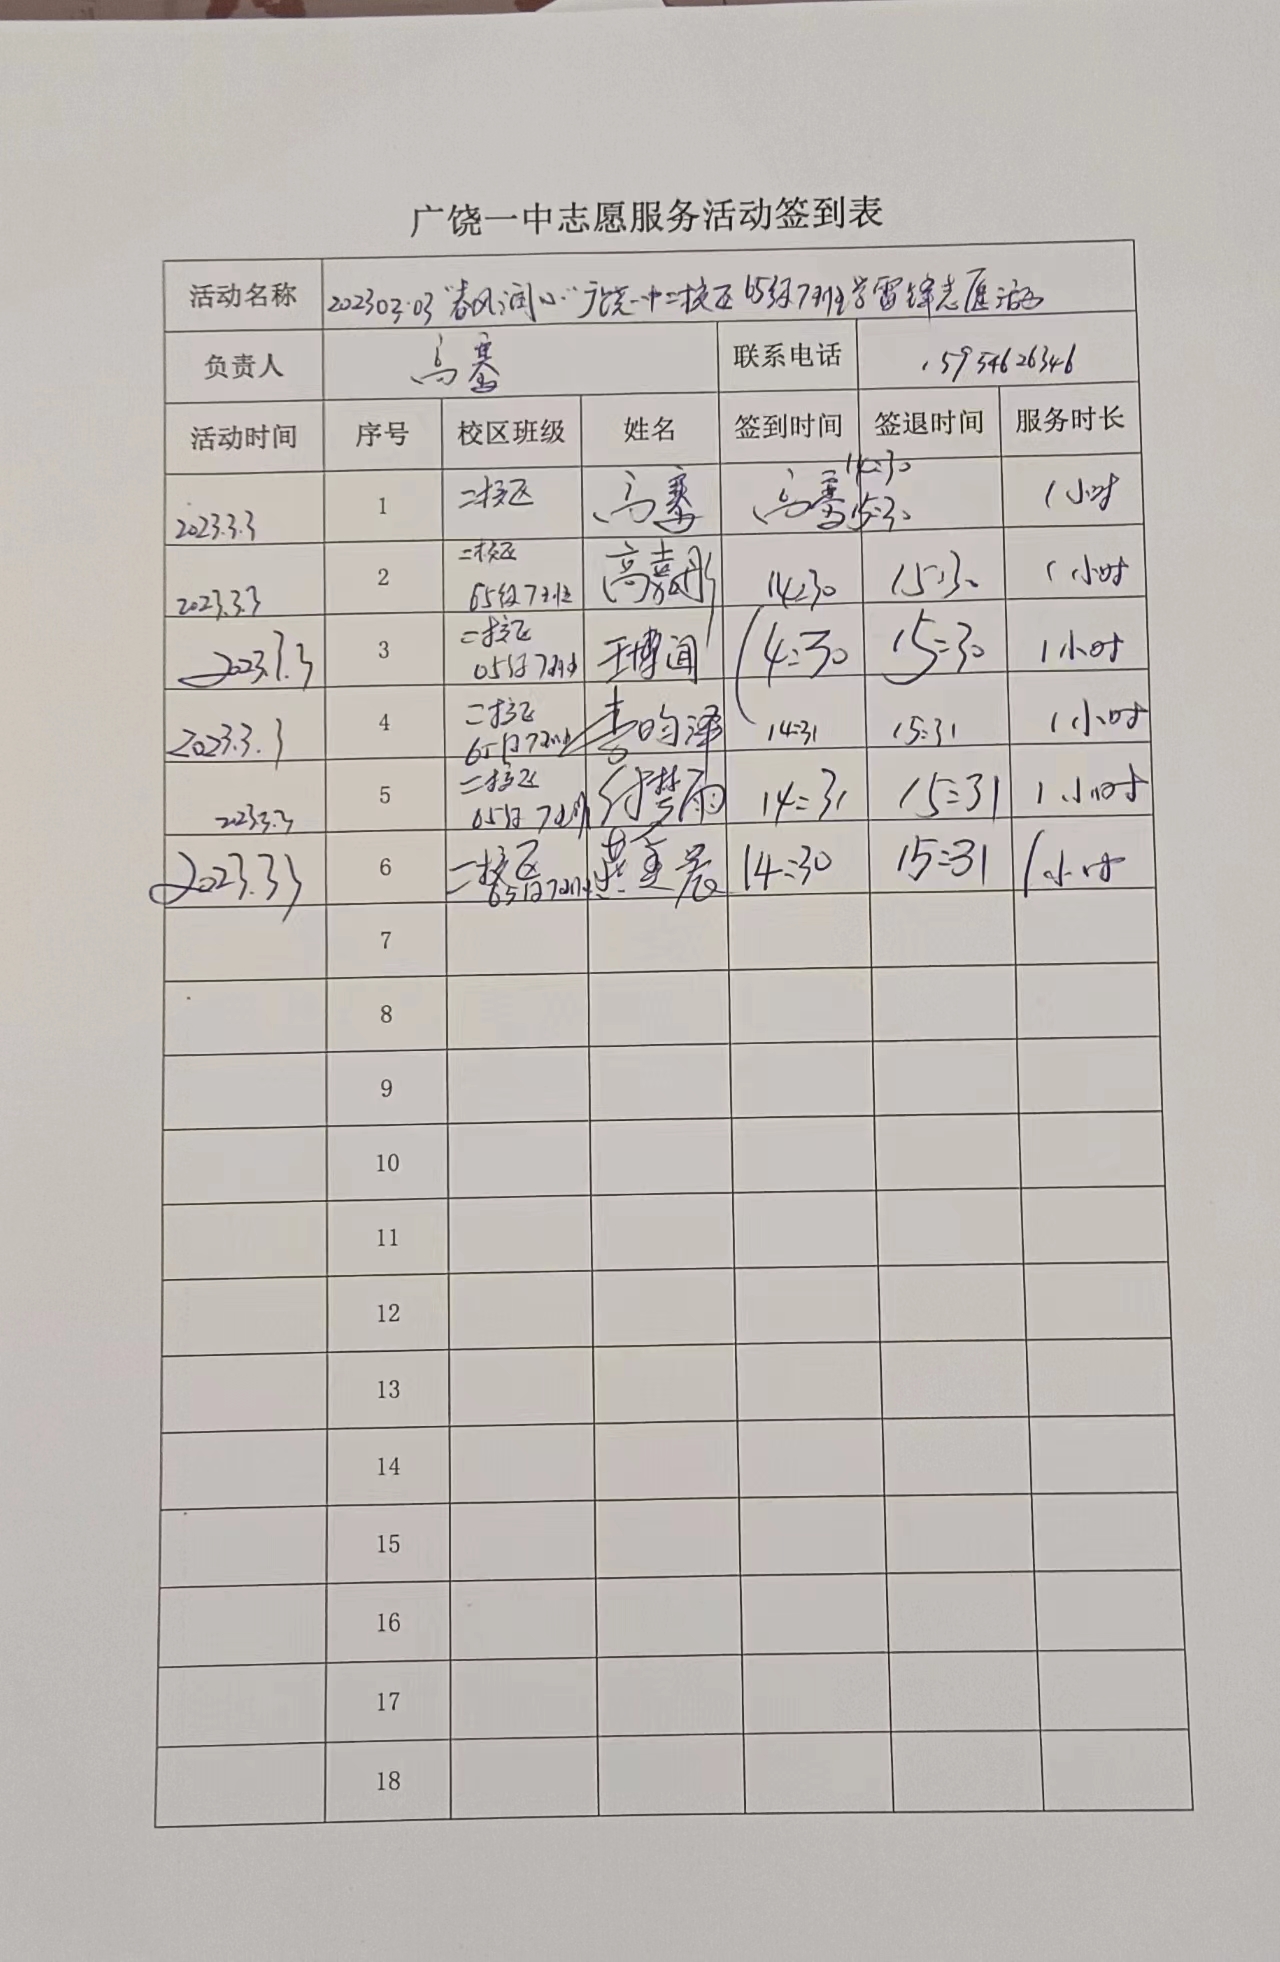 广饶一中志愿服务活动签到表
活动名称 202303.03“春风润心”广饶一中二校区65级7班学雷锋志愿活动
负责人 高骞 联系电话 15954626346
活动时间 序号 校区班级 姓名 签到时间 签退时间 服务时长
2023.3.3 1 二校区 高骞 高骞 14:30 15:30 1小时
2023.3.3 2 二校区 65级7班 高嘉彤 14:30 15:30 1小时
2023.3.3 3 二校区 65级7班 王博闻 14:30 15:30 1小时
2023.3.3 4 二校区 65级7班 李昀泽 14:31 15:31 1小时
2023.3.3 5 二校区 65级7班 付梦雨 14:31 15:31 1小时
2023.3.3 6 二校区 65级7班 14:30 15:31 1小时
7
8
9
10
11
12
13
14
15
16
17
18